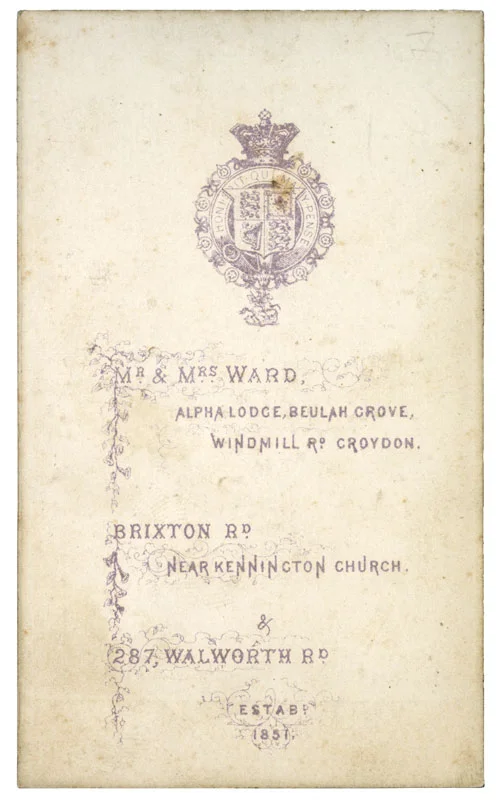 HONI SOIT QUI MAL Y PENSE
MR & MRS WARD,
ALPHA LODGE, BEULAH GROVE,
WINDMILL RD CROYDON.
BRIXTON RD
NEAR KENNINGTON CHURCH.
&
287, WALWORTH RD
ESTABD
1851.